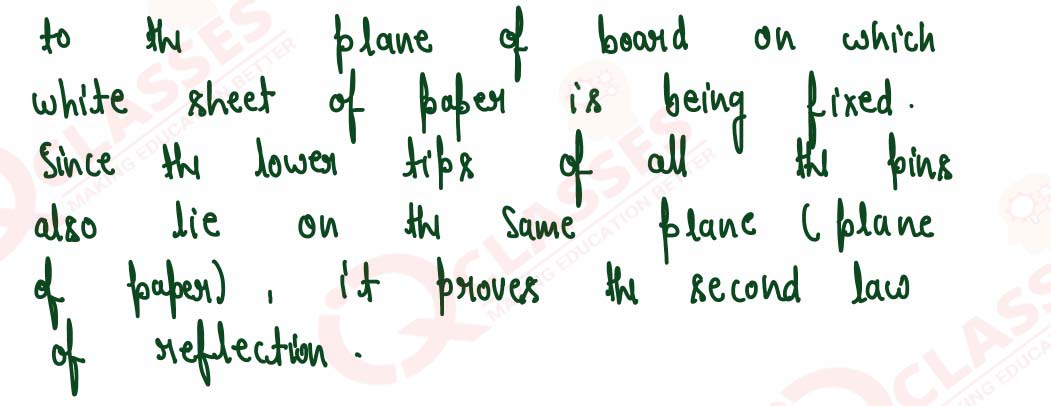 to the plane of board on which
white sheet of paper is being fixed.
Since the lower tips of all the pins
also lie on the same plane (plane
of paper), it proves the second law
of reflection.
CLASSES
MAKING EDUCATION BETTER
CLASSES
MAKING EDUCATION BETTER
CLASSES